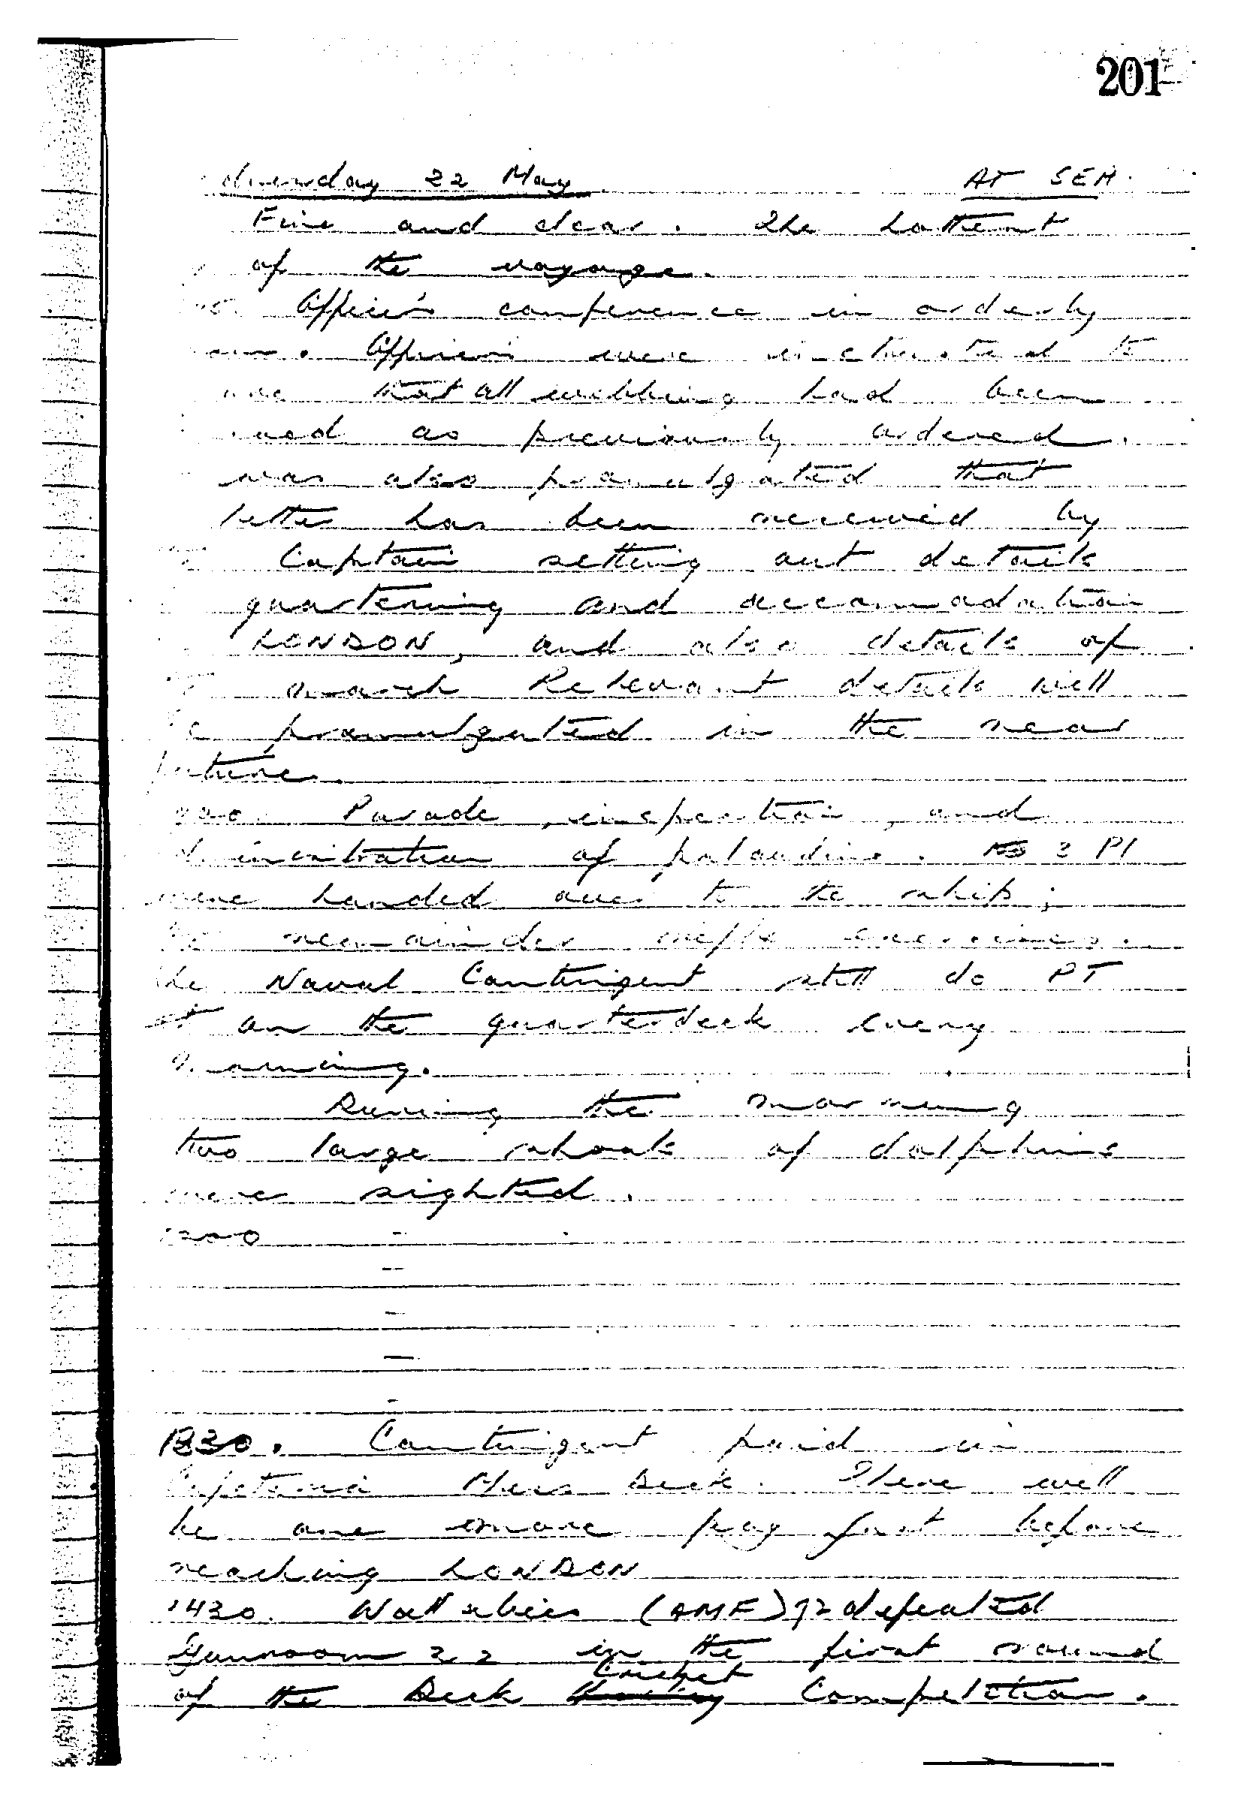 201
Thursday 22 May AT SEA
Fine and clear. The hottest
of the voyage.
Officers conference in orderly
Officers were instructed to
that all webbing had been
as previously ordered.
was also promulgated that
letter has been received by
Captain setting out details
quartering and accomodation
LONDON, and also details of
march Relevant details will
be promulgated in the near
future.
Parade, inspection, and
of paludrine. 3 Pl
were handed over to the ship;
the remainder rifle exercises.
The Naval Contingent still do PT
on the quarterdeck every
morning.
During the morning
two large shoals of dolphins
were sighted.
1200 -
-
-
-
-
1330. Contingent paid in
Cafeteria Mess Deck. There will
be one more pay just before
reaching LONDON
1430. Wallabies (AMF) 72 defeated
Gunroom 32 in the first round
of the Deck Cricket Competition.